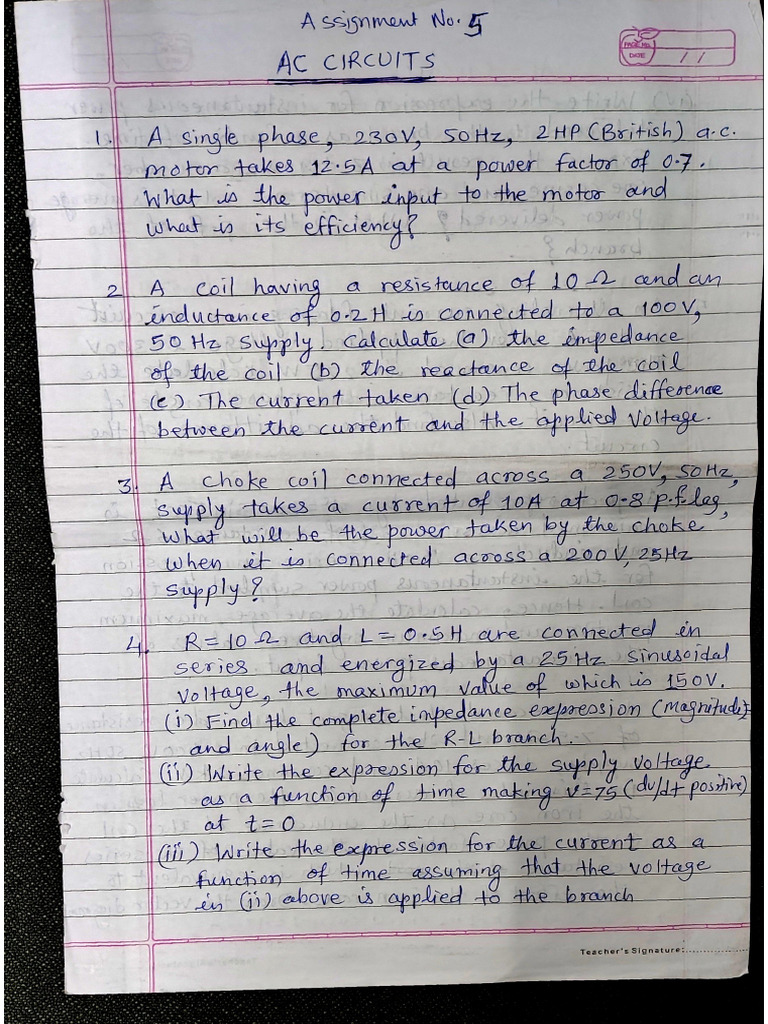 Assignment No. 5
AC CIRCUITS
PAGE NO.
DATE / /
1. A single phase, 230V, 50Hz, 2HP (British) a.c.
motor takes 12.5A at a power factor of 0.7.
What is the power input to the motor and
what is its efficiency?
2 A coil having a resistance of 10 Ω and an
inductance of 0.2 H is connected to a 100V,
50 Hz supply. Calculate (a) the impedance
of the coil (b) the reactance of the coil
(c) The current taken (d) The phase difference
between the current and the applied voltage.
3. A choke coil connected across a 250V, 50Hz,
supply takes a current of 10A at 0.8 p.f. lag,
What will be the power taken by the choke
when it is connected across a 200V, 25Hz
supply?
4. R = 10 Ω and L = 0.5H are connected in
series and energized by a 25 Hz sinusoidal
voltage, the maximum value of which is 150V.
(i) Find the complete impedance expression (magnitude
and angle) for the R-L branch.
(ii) Write the expression for the supply voltage
as a function of time making v=75 (dv/dt positive)
at t=0
(iii) Write the expression for the current as a
function of time assuming that the voltage
in (ii) above is applied to the branch
Teacher's Signature:..................